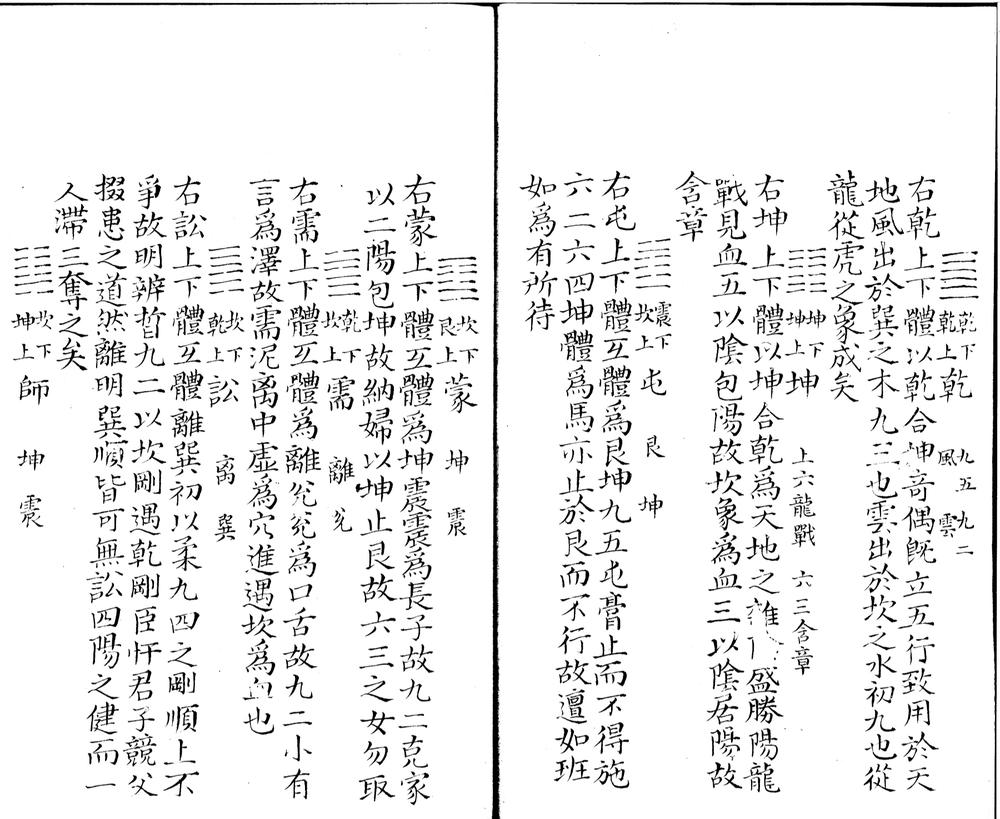 乾下乾上 乾 九五風 九二雲
右乾上下體以乾合坤奇偶既立五行致用於天
地風出於巽之木九三也雲出於坎之水初九也從
龍從虎之象成矣
坤下坤上 坤 上六龍戰 六三含章
右坤上下體以坤合乾為天地之雜盛勝陽龍
戰見血五以陰包陽故坎象為血三以陰居陽故
含章
震下坎上 屯 艮 坤
右屯上下體互體為艮坤九五屯膏止而不得施
六二六四坤體為馬亦止於艮而不行故邅如班
如為有所待
坎下艮上 蒙 坤 震
右蒙上下體互體為坤震震為長子故九二克家
以二陽包坤故納婦以坤止艮故六三之女勿取
乾下坎上 需 離 兊
右需上下體互體為離兊兊為口舌故九二小有
言為澤故需泥离中虛為穴進遇坎為血也
坎下乾上 訟 离 巽
右訟上下體互體離巽初以柔九四之剛順上不
爭故明辨晳九二以坎剛遇乾剛臣忓君子競父
掇患之道然離明巽順皆可無訟四陽之健而一
人滯三奪之矣
坎下坤上 師 坤 震